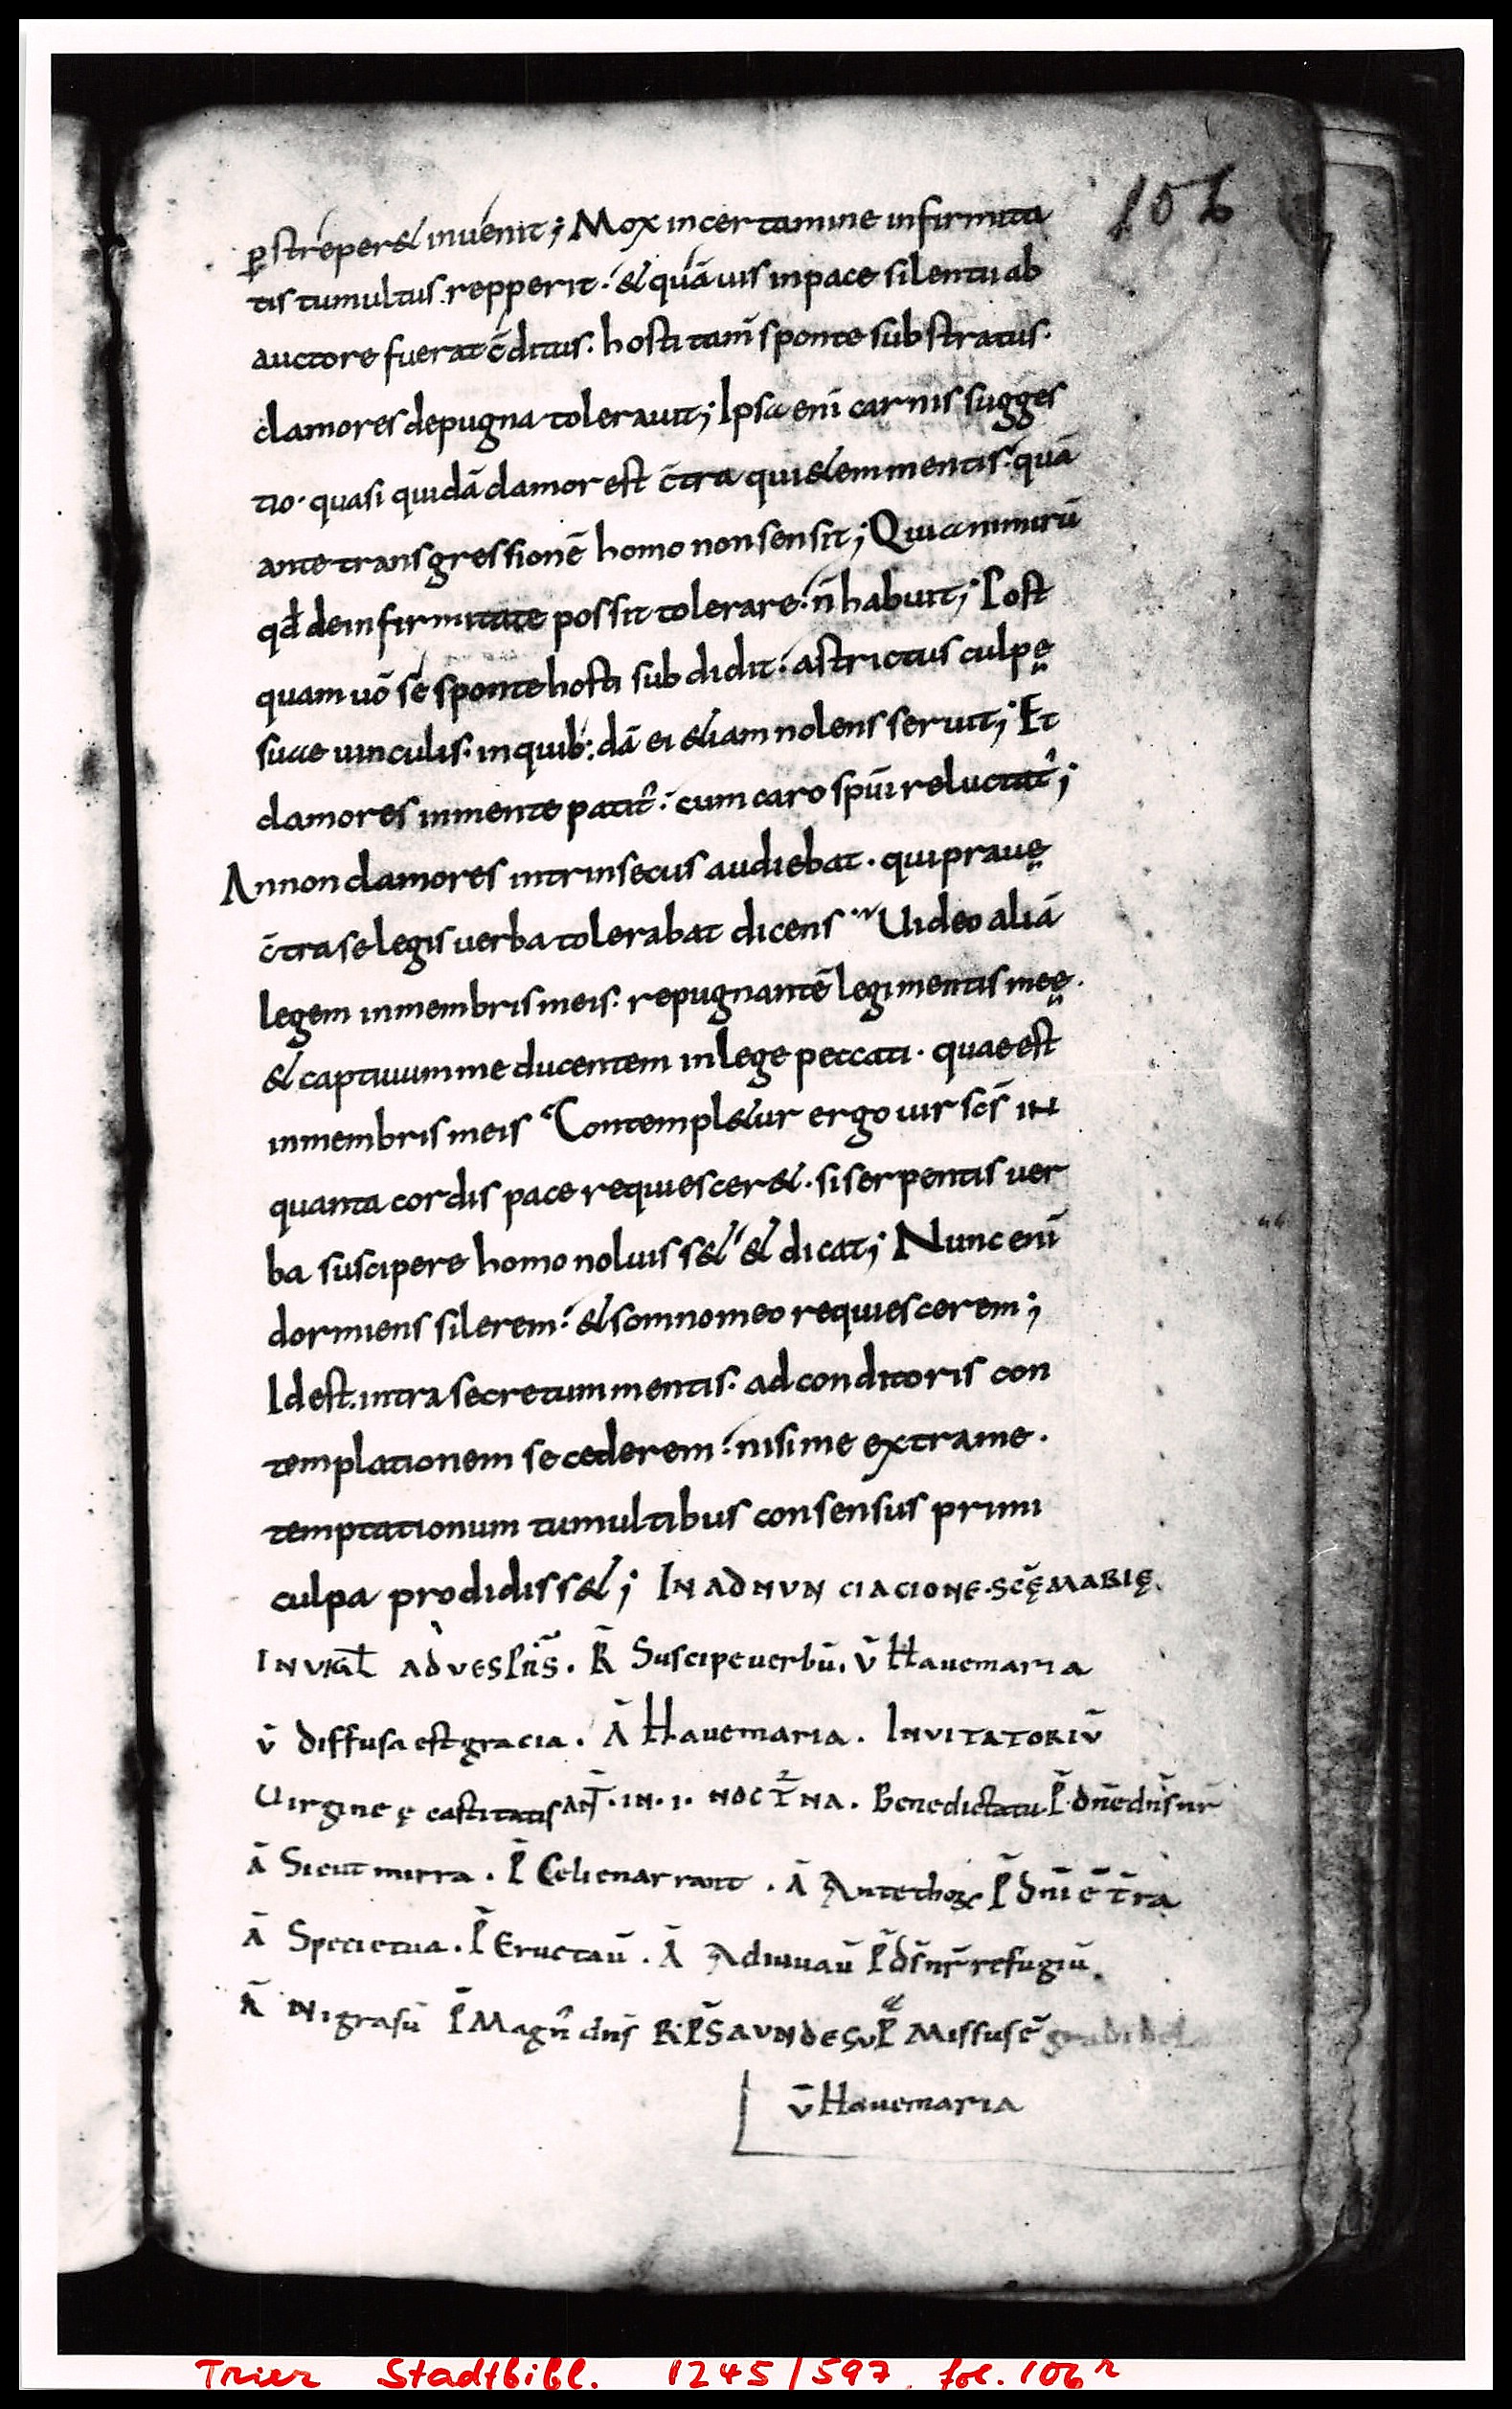 106
p̱streper& inuenit; Mox in certamine infirmita
tis tumultus repperit. & quāuis in pace silentii ab
auctore fuerat c̄ditus. hosti tam̄ sponte substratus.
clamores de pugna tolerauit; Ipsa eni̅ carnis sugges
tio. quasi quidā clamor est c̄tra qui&em mentis. quā
ante transgressionē homo non sensit; Quia nimirū
qđ de infirmitate possit tolerare. n̄ habuit; Post
quam uō se sponte hosti subdidit. astrictus culpę
suae uinculis. in quib; dā ei &iam nolens seruit; Et
clamores in mente patit᷑. cum caro spūi reluctat᷑;
An non clamores intrinsecus audiebat. qui prauę
c̄tra se legis uerba tolerabat dicens Uideo aliā
legem in membris meis. repugnantē legi mentis meę.
& captiuum me ducentem in lege peccati. quae est
in membris meis Contempl&ur ergo uir scs̄ IN
quanta cordis pace requiescer&. si serpentis uer
ba suscipere homo noluiss& & dicat; Nunc eni̅
dormiens silerem. & somno meo requiescerem;
Id est. intra secretum mentis. ad conditoris con
templationem secederem. nisi me extra me.
temptationum tumultibus consensus primi
culpa prodidiss&; IN ADNUNCIACIONE. SCĒ MARIĘ.
IN VIGL̄ AD VESPR̄S. R̄ Suscipe uerbū. v̄ Haue maria
v̄ diffusa est gracia. Ā Haue maria. INVITATORIV̄
Uirgineę castitatis ANT̄. IN. I. NOCT᷑NA. Benedicta tu. P̄ dn̄e dn̄s nr̄
Ā Sicut mirra. P̄ Celi enarrant. Ā Ante thorū P̄ dn̄i ē t̄ra
Ā Specie tua. P̄ Eructaū. Ā Adiuuaū P̄ ds̄ nr̄ refugiū.
Ā Nigra sū P̄ Magn᷑ dn̄s R. PS̄ Missus ē
v̄ Haue maria
Trier Stadtbibl. 1245/597, fol. 106r